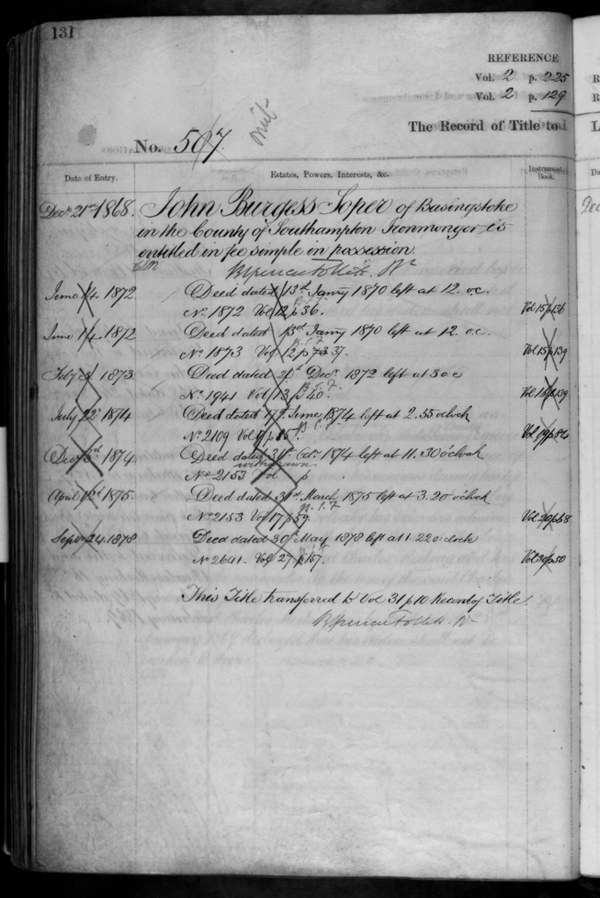 131
REFERENCE
Vol. 2 p. 225
Vol. 2 p. 129
The Record of Title to
No. 507
Date of Entry.
Estates, Powers, Interests, &c.
Instrument Book.
Decr. 21st 1868. John Burgess Soper of Basingstoke
in the County of Southampton Ironmonger is
entitled in fee simple in possession.
June 14. 1872. Deed dated 13th Janry 1870 left at 12. o.c.
No. 1872 Vol 12 p 36. Vol 15 p 136
June 14. 1872 Deed dated 13d Janry 1870 left at 12. o.c.
No. 1873 Vol 12 p 37. Vol 15 p 139
1873 Deed dated Decr. 1872 left at 3 o c
No. 1941 Vol 13 p 40.
July 22d 1874 Deed dated June 1874 left at 2.55 oclock
No. 2109 Vol
1874. Deed dated 31st Octr. 1874 left at 11.30 o'clock
withdrawn
No. 2153 Vol p
April 1875. Deed dated 31st March 1875 left at 3.20 o'clock
No. 2153 Vol 17 p 59.
Septr. 24. 1878 Deed dated 30 May 1878 left at 1.22 oclock
No. 2641. Vol 27 p 157. Vol 30 p 50
This Title transferred to Vol 31 p 10 Record of Title